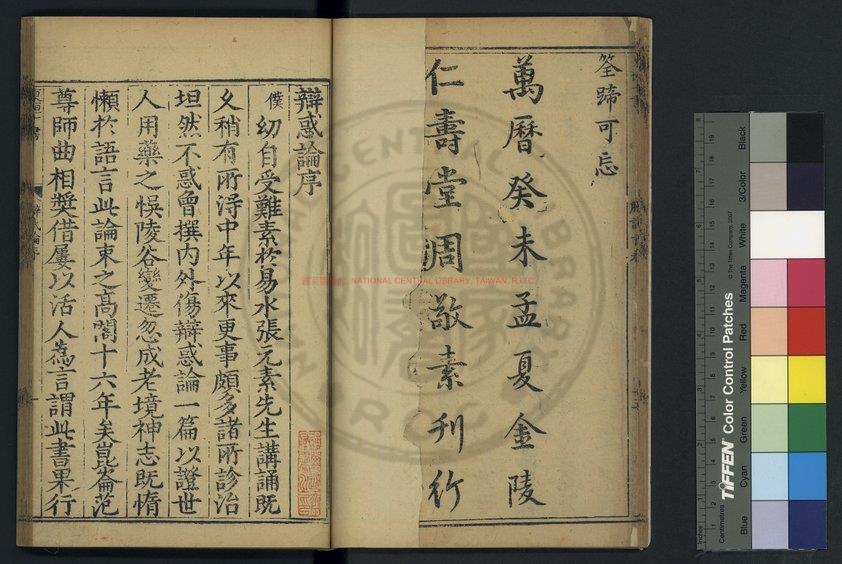 筌蹄可忘
萬曆癸未孟夏金陵
仁壽堂周敬素刊行
辯惑論序
僕幼自受難素於易水張元素先生講誦既
久稍有所得中年以來更事頗多諸所診治
坦然不惑曾撰內外傷辯惑論一篇以證世
人用藥之悞陵谷變遷忽成老境神志既惰
懶於語言此論束之高閣十六年矣崑崙范
尊師曲相奬借屢以活人為言謂此書果行
NATIONAL CENTRAL LIBRARY, TAIWAN, R.O.C.
TIFFEN Color Control Patches
© The Tiffen Company, 2007
Centimetres
Inches
Blue
Cyan
Green
Yellow
Red
Magenta
White
3/Color
Black